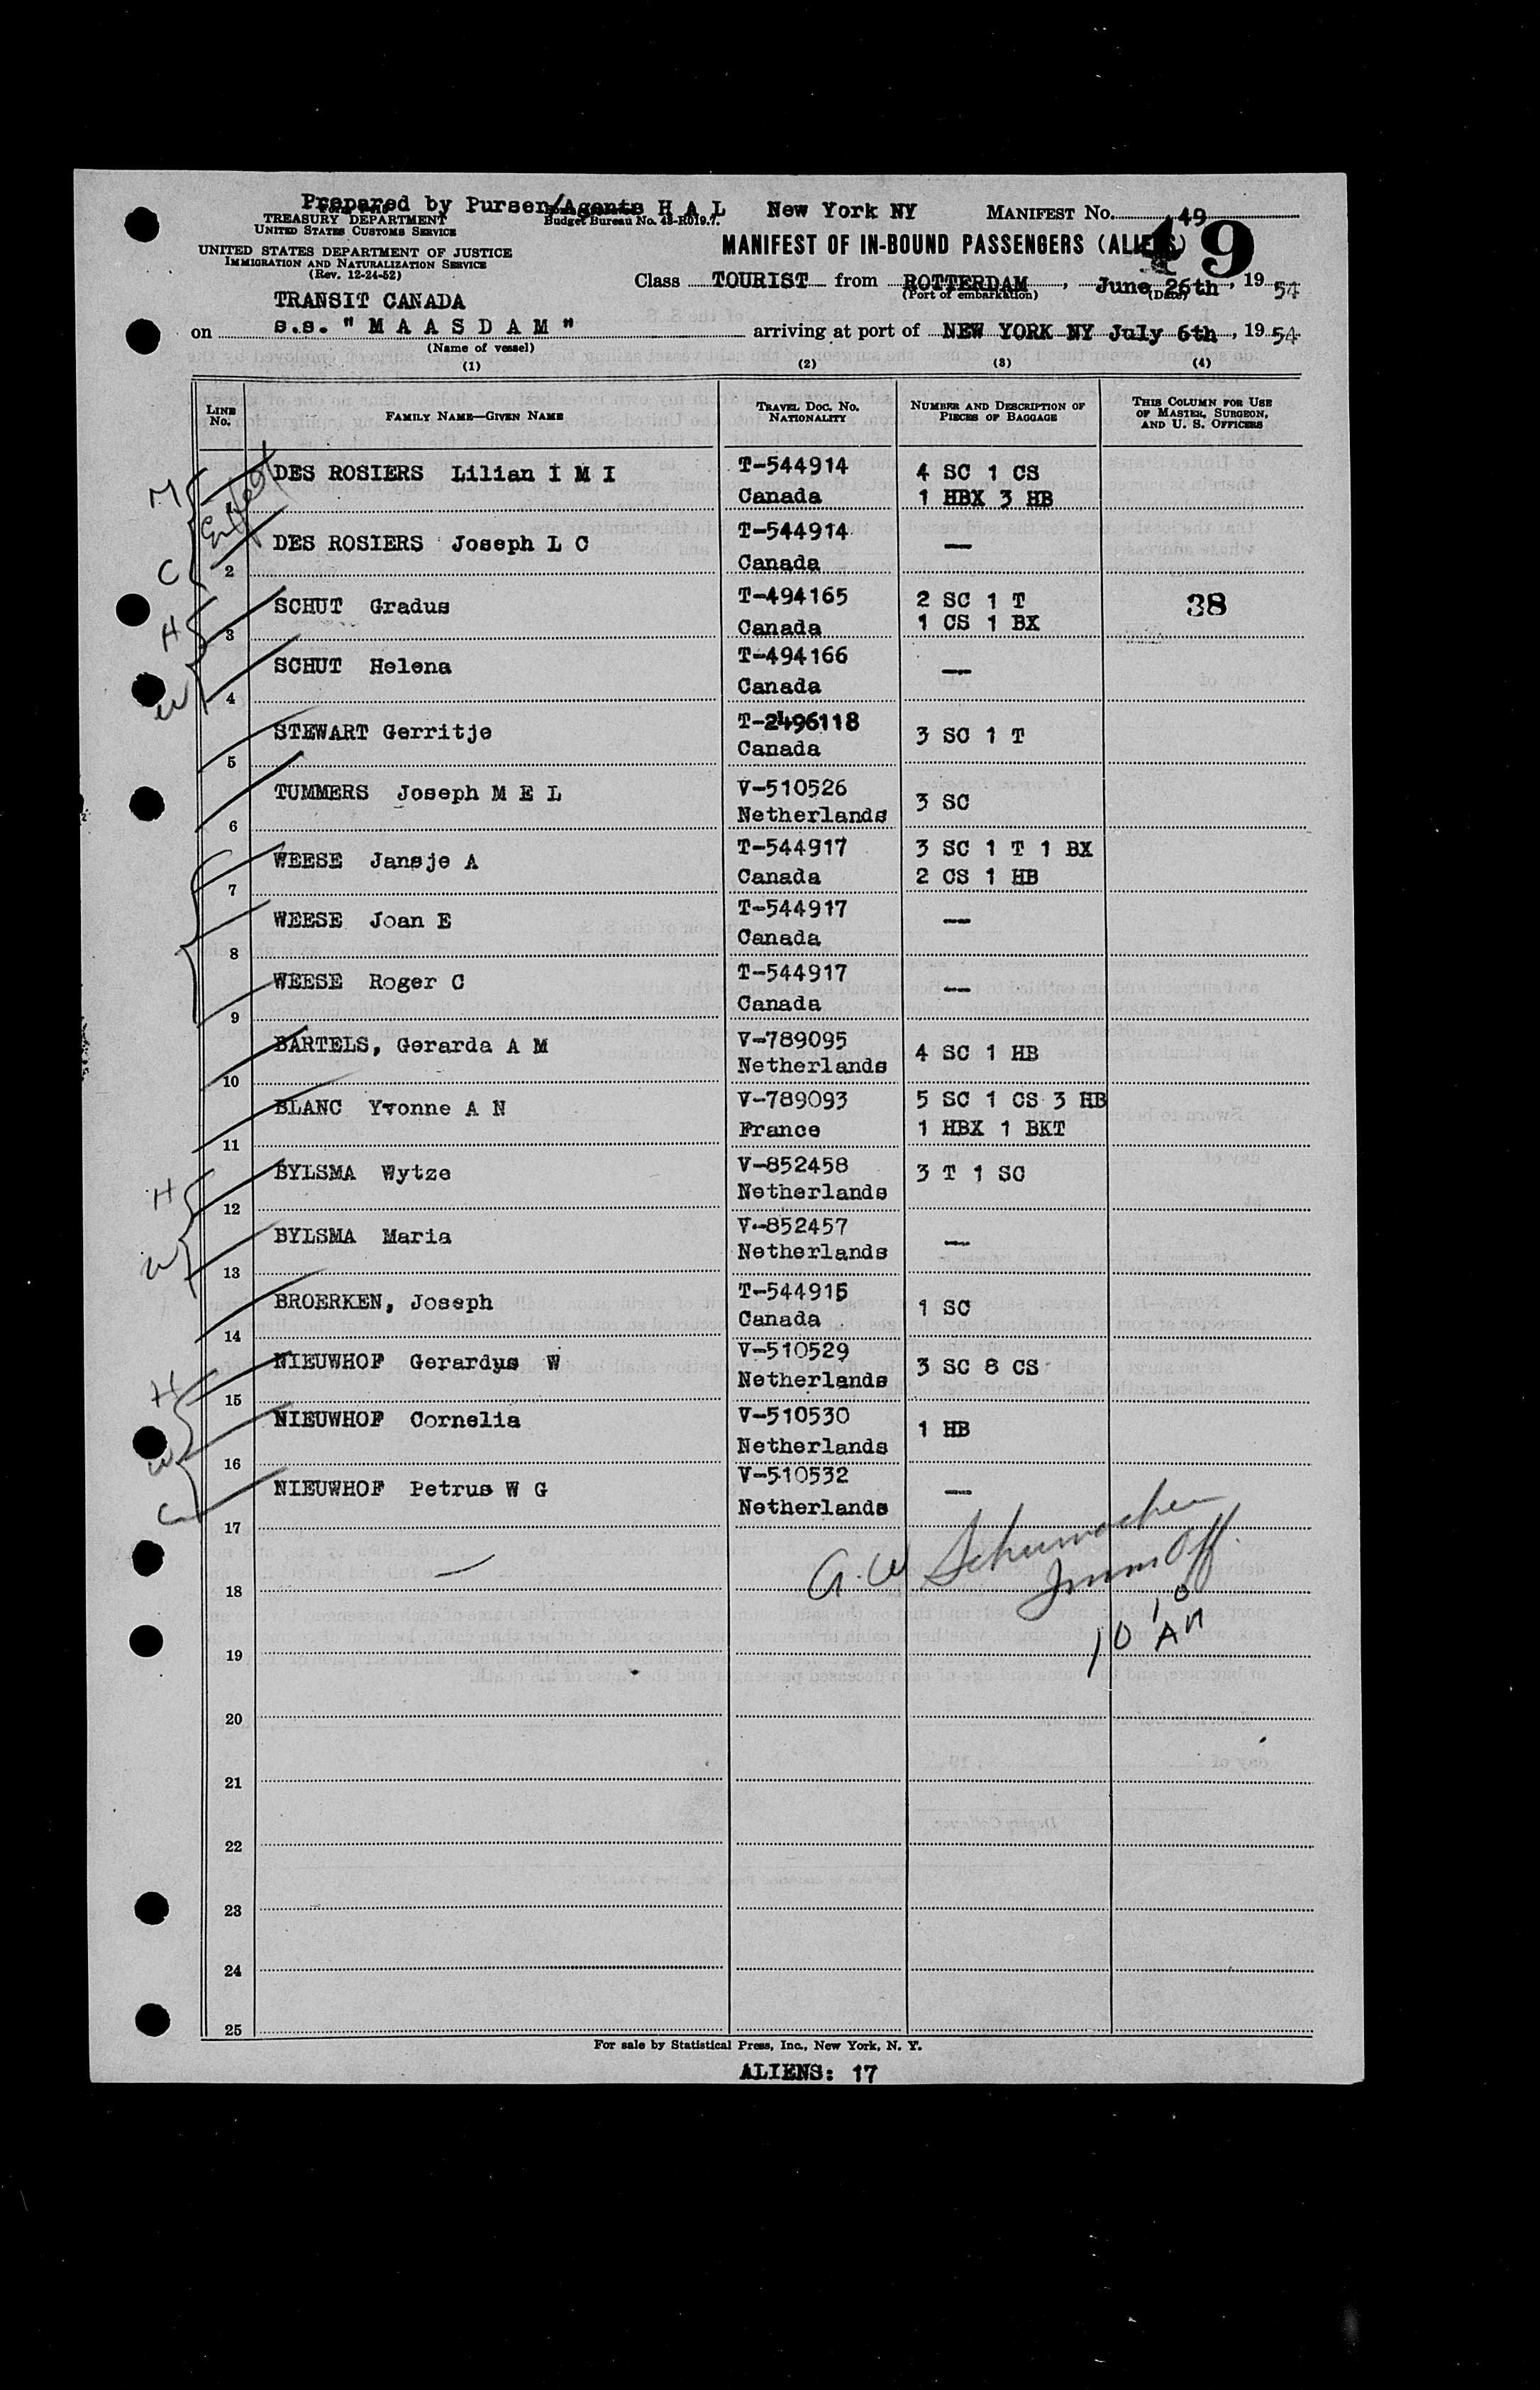 Prepared by Purser/Agents H A L New York NY MANIFEST No. 49
TREASURY DEPARTMENT Budget Bureau No. 43-R019.7.
UNITED STATES CUSTOMS SERVICE
UNITED STATES DEPARTMENT OF JUSTICE MANIFEST OF IN-BOUND PASSENGERS (ALIENS) 49
IMMIGRATION AND NATURALIZATION SERVICE
(Rev. 12-24-52)
Class TOURIST from ROTTERDAM, June 26th, 1954
(Port of embarkation) (Date)
TRANSIT CANADA
on s.s. " M A A S D A M " arriving at port of NEW YORK NY July 6th, 1954
(Name of vessel)
(1) (2) (3) (4)
LINE No. FAMILY NAME—GIVEN NAME TRAVEL DOC. NO. NATIONALITY NUMBER AND DESCRIPTION OF PIECES OF BAGGAGE THIS COLUMN FOR USE OF MASTER, SURGEON, AND U. S. OFFICERS
M DES ROSIERS Lilian I M I T-544914 4 SC 1 CS
1 Canada 1 HBX 3 HB
DES ROSIERS Joseph L C T-544914 —
C 2 Canada
SCHUT Gradus T-494165 2 SC 1 T 38
H 3 Canada 1 CS 1 BX
SCHUT Helena T-494166 —
W 4 Canada
STEWART Gerritje T-2496118 3 SC 1 T
5 Canada
TUMMERS Joseph M E L V-510526 3 SC
6 Netherlands
WEESE Jansje A T-544917 3 SC 1 T 1 BX
7 Canada 2 CS 1 HB
WEESE Joan E T-544917 —
8 Canada
WEESE Roger C T-544917 —
9 Canada
BARTELS, Gerarda A M V-789095 4 SC 1 HB
10 Netherlands
BLANC Yvonne A N V-789093 5 SC 1 CS 3 HB
11 France 1 HBX 1 BKT
H BYLSMA Wytze V-852458 3 T 1 SC
12 Netherlands
BYLSMA Maria V-852457 —
W 13 Netherlands
BROERKEN, Joseph T-544915 1 SC
14 Canada
H NIEUWHOF Gerardus W V-510529 3 SC 8 CS
15 Netherlands
NIEUWHOF Cornelia V-510530 1 HB
W 16 Netherlands
NIEUWHOF Petrus W G V-510532 —
C 17 Netherlands
G. W Schumacher
Imm Off.
18
10 10 AM
19
20
21
22
23
24
25
For sale by Statistical Press, Inc., New York, N. Y.
ALIENS: 17